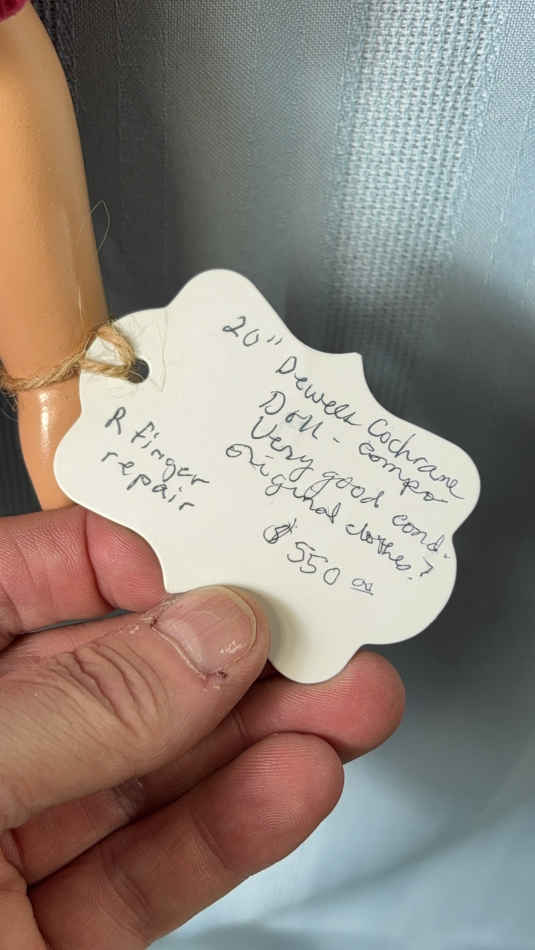 20" Dewees Cochrane
Doll - compo
Very good cond.
original clothes?
$550 00
R finger
repair